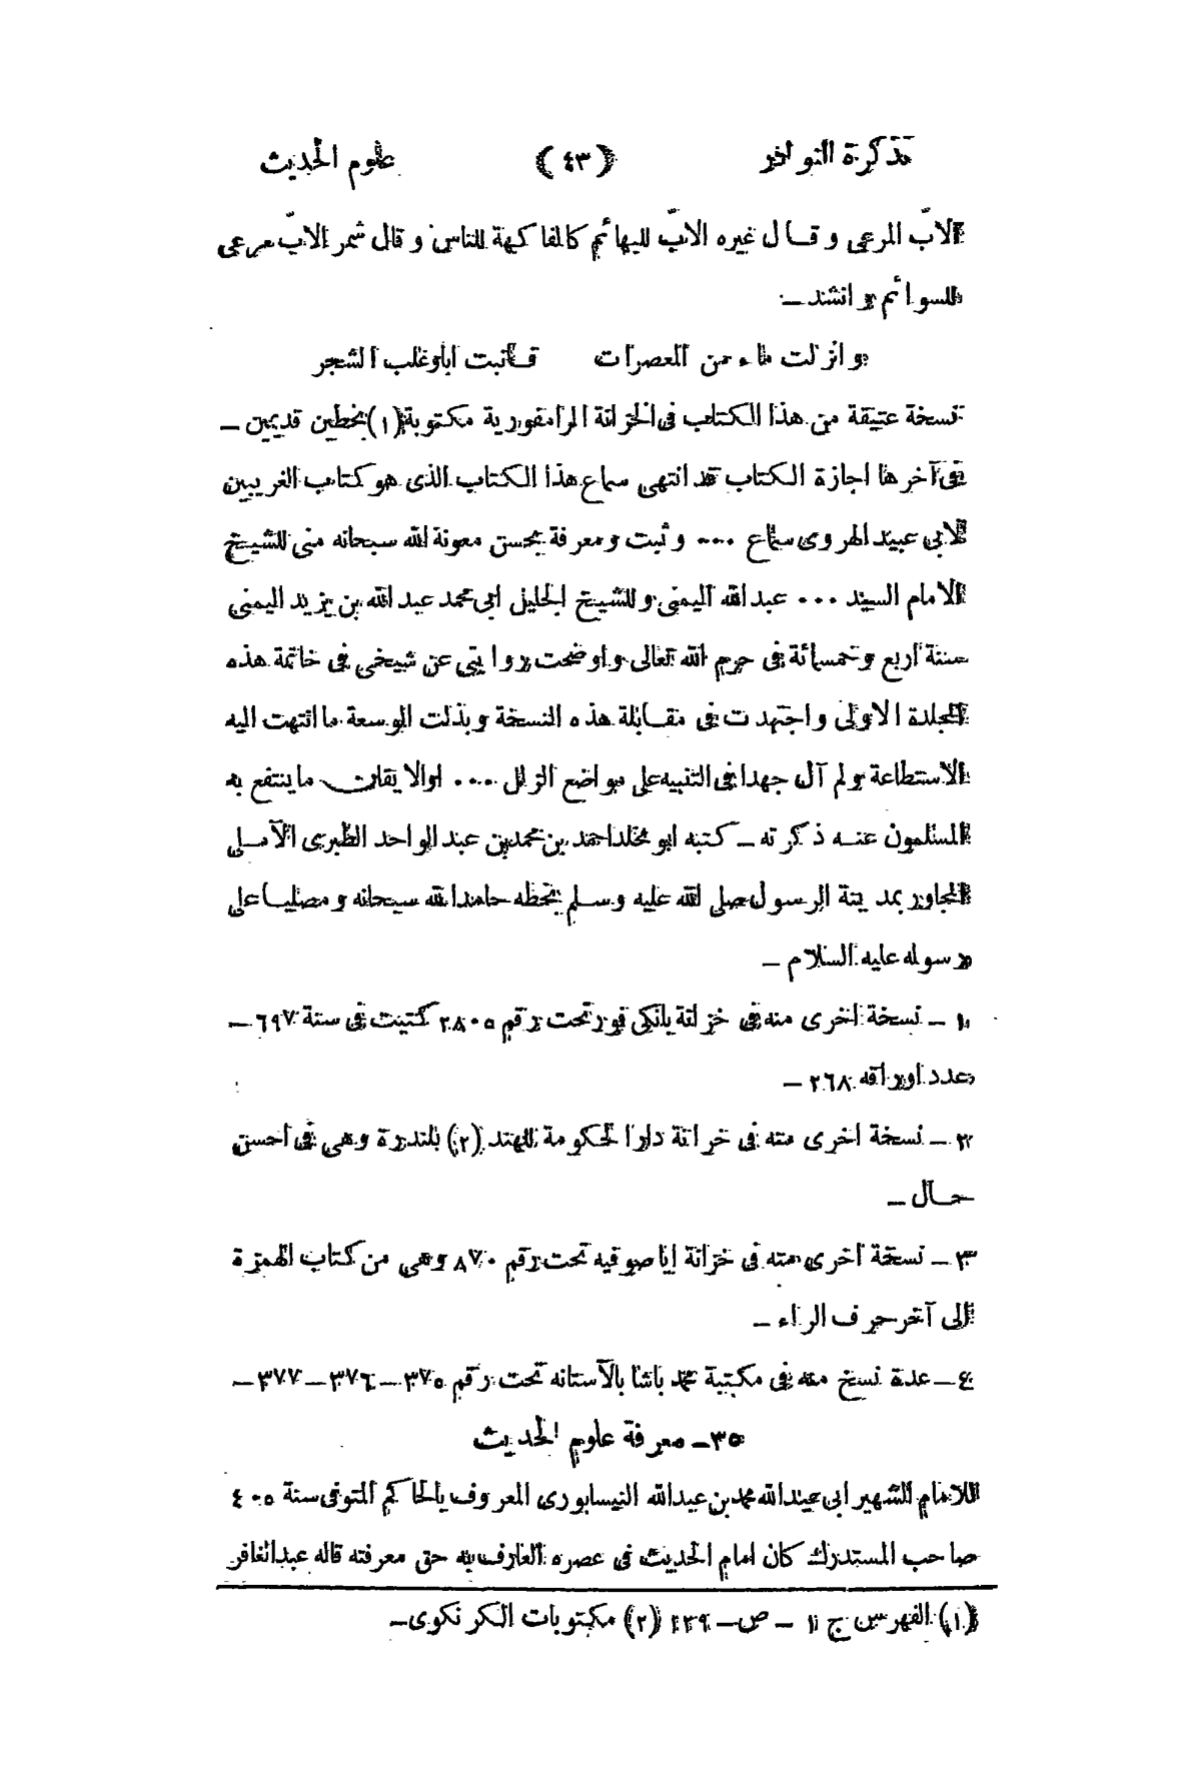 تذكرة النوادر (٤٣) علوم الحديث
الابّ المرعى وقال غيره الابّ للبهائم كالفاكهة للناس وقال شمر الابّ مرعى
للسوائم وانشد –
وانزلت ماء من المعصرات فأنبت ابا وغلب الشجر
نسخة عتيقة من هذا الكتاب فى الخزانة الرامفورية مكتوبة (١) بخطين قديمين –
فى آخرها اجازة الكتاب قد انتهى سماع هذا الكتاب الذى هو كتاب الغريبين
لابى عبيد الهروى سماع ... وثبت ومعرفة بحسن معونة الله سبحانه منى للشيخ
الامام السيد ... عبد الله اليمنى وللشيخ الجليل ابى محمد عبد الله بن يزيد اليمنى
سنة اربع وخمسمائة فى حرم الله تعالى واوضحت روايتى عن شيخى فى خاتمة هذه
المجلدة الاولى واجتهدت فى مقابلة هذه النسخة وبذلت الوسعة ما انتهت اليه
الاستطاعة ولم آل جهدا فى التنبيه على مواضع الزلل ... اوالا يقان ما ينتفع به
المسلمون عنه ذكرته – كتبه ابو مخلد احمد بن محمد بن عبد الواحد الطبرى الآملى
المجاور بمدينة الرسول صلى الله عليه وسلم بخطه حامدا لله سبحانه ومصليا على
رسوله عليه السلام –
١ – نسخة اخرى منه فى خزانة بانكى فور تحت رقم ٢٨٠٥ كتبت فى سنة ٦٩٧ –
عدد اوراقه ٢٦٨ –
٢ – نسخة اخرى منه فى خزانة دار الحكومة للهند (٢) بلندرة وهى فى احسن
حال –
٣ – نسخة اخرى منه فى خزانة ايا صوفيه تحت رقم ٨٧٠ وهى من كتاب الهمزة
الى آخر حرف الراء –
٤ – عدة نسخ منه فى مكتبة محمد باشا بالآستانه تحت رقم ٣٧٥ – ٣٧٦ – ٣٧٧ –
٣٥ – معرفة علوم الحديث
للامام الشهير ابى عبد الله محمد بن عبد الله النيسابورى المعروف بالحاكم المتوفى سنة ٤٠٥
صاحب المستدرك كان امام الحديث فى عصره العارف به حق معرفته قاله عبد الغافر
(١) الفهرس ج ١ – ص – ٤٣٩ (٢) مكتوبات الكرنكوى –